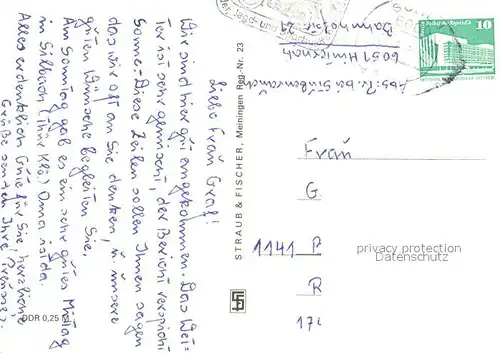 Liebe Frau Graf!
Wir sind hier gut angekommen. Das Wet=
ter ist sehr gemischt, der Bericht verspricht
Sonne. Diese Zeilen sollen Ihnen sagen
das wir oft an Sie denken, u. unsere
guten Wünsche begleiten Sie.
Am Sonntag gab es ein sehr gutes Mittag
in Silbach (Thür. Klö.) Oma ist da.
Alles erdenklich Gute für Sie, herzliche
Grüße senden Ihre
DDR 0,25 M
STRAUB & FISCHER, Meiningen Reg.-Nr. 23
der Jagd- und
Abs.: bei
6051 Hinternah
Bahnhofstr. 21
Palast der Republik
10
Frau
G
1141 P
R
17
privacy protection
Datenschutz